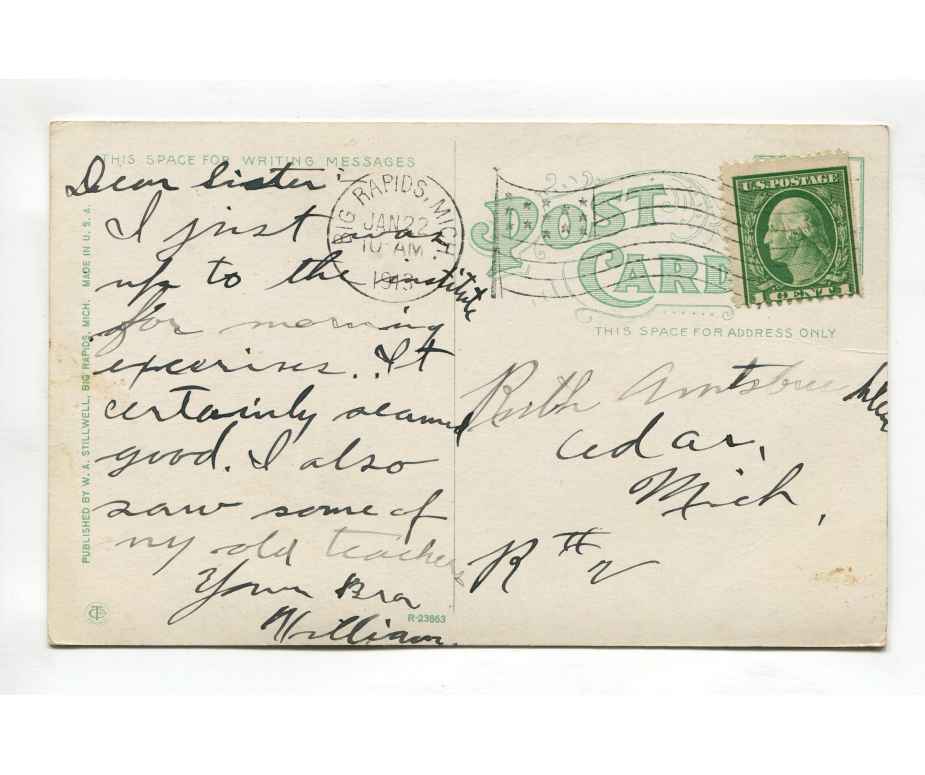 THIS SPACE FOR WRITING MESSAGES
Dear Sister:
I just was
up to the institute
for morning
excerises. It
certainly seamed
good. I also
saw some of
my old teachers
Your Bro
William.
PUBLISHED BY W. A. STILLWELL, BIG RAPIDS, MICH. MADE IN U.S.A.
R-23663
BIG RAPIDS, MICH.
JAN 22
10 AM
1913
POST
CARD
THIS SPACE FOR ADDRESS ONLY
U.S. POSTAGE
1 CENT 1
Ruth
Cedar,
Mich,
R # 2